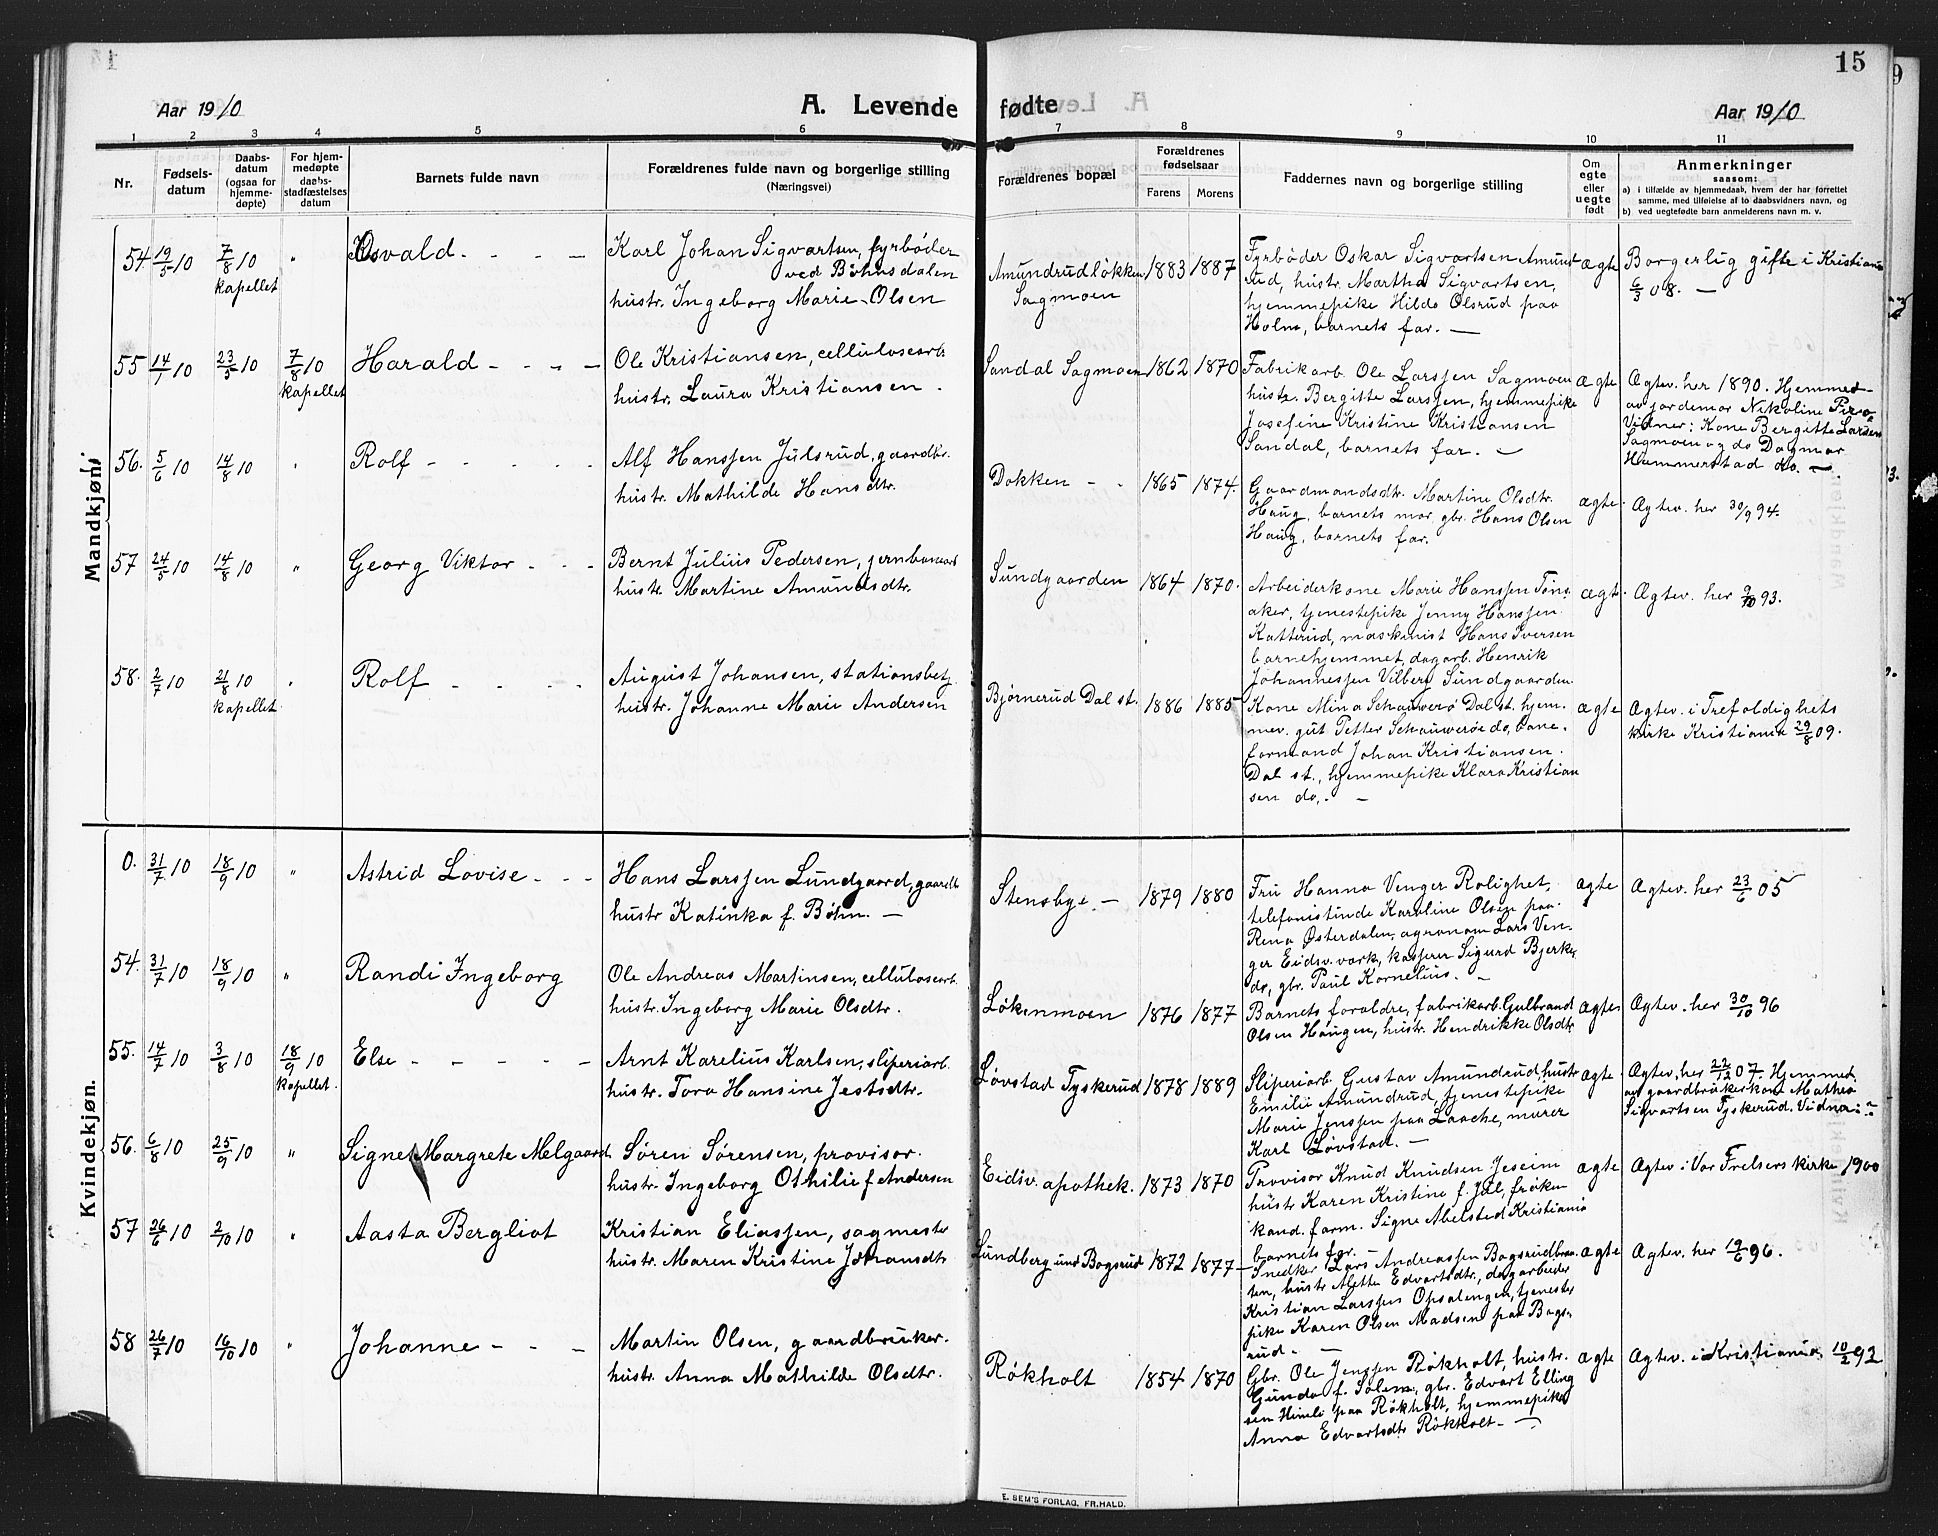 15
Aar 1910
A. Levende fødte
Aar 1910
1 2 3 4 5 6 7 8 9 10 11
Nr.
Fødsels-
datum
Daabs-
datum
(ogsaa for
hjemme-
døpte)
For hjem-
medøpte
daabs-
stadfæstelses
datum
Barnets fulde navn
Forældrenes fulde navn og borgerlige stilling
(Næringsvei)
Forældrenes bopæl
Forældrenes
fødselsaar
Farens Morens
Faddernes navn og borgerlige stilling
Om
egte
eller
uegte
født
Anmerkninger
saasom:
a) i tilfælde av hjemmedaab, hvem der har forrettet
samme, med tilføielse af to daabsvidners navn, og
b) ved uegtefødte barn anmelderens navn m. v.
Mandkjøn:
54 19/5 10 7/8 10 " Osvald - - -
kapellet
Karl Johan Sigvartsen, fyrbøder
ved Bøhnsdalen
hustr. Ingeborg Marie Olsen
Amundrudløkken
Sagmoen
1883 1887
Fyrbøder Oskar Sigvartsen Amund
rud, hustr. Martha Sigvartsen,
hjemmepike Hilda Olsrud paa
Holm, barnets far. —
ægte
Borgerlig gifte i Kristiania
6/3 08. —
55 14/1 10 23/5 10 7/8 10 Harald - - -
kapellet
Ole Kristiansen, cellulosearb.
hustr. Laura Kristiansen.
Sandal Sagmoen 1862 1870
Fabrikarb. Ole Larssen Sagmoen
hustr. Bergitte Larssen, hjemmepike
Josefine Kristine Kristiansen
Sandal, barnets far. —
ægte
Ægtev. her 1890. Hjemmed-
av jordemor Nikoline
Vidner: Kone Bergitte Larsen
Sagmoen og do Dagmar
Hammerstad do. —
56. 5/6 10 14/8 10 " Rolf - - - -
Alf Hanssen Julsrud, gaardbr.
hustr. Mathilde Hansdtr.
Dokken - - 1865 1874.
Gaardmandsdtr. Martine Olsdtr.
Haug, barnets mor, gbr. Hans Olsen
Haug, barnets far.
ægte.
Ægtev. her 30/9 94.
57 24/5 10 14/8 10 " Georg Viktor - - -
Bernt Julius Pedersen, jernbanearb
hustr. Martine Amundsdtr.
Sundgaarden 1864 1870.
Arbeiderkone Marie Hanssen Tøns
aker, tjenestepike Jenny Hanssen
Katterud, maskinist Hans Iversen
barnehjemmet, dagarb. Henrik
Johannessen Vilberg Sundgaarden
ægte.
Ægtev. her 9/10 93.
58. 2/7 10 21/8 10 " Rolf - - - -
kapellet
August Johansen, stationsbetj.
hustr. Johanne Marie Andersen
Bjørnerud Dal st. 1886 1885
Kone Mina Schauwerø Dal st. hjem-
mev. gut Petter Schauwerøe do, bane-
formand Johan Kristiansen.
Dal st., hjemmepike Klara Kristian
sen do. —
ægte
Ægtev. i Trefoldighets
kirke Kristiania 29/8 09.
Kvindekjøn.
0. 31/7 10 18/9 10 " Astrid Lovise - - -
Hans Larssen Lundgaard, gaardb
hustr Katinka f. Bøhn. —
Stensbye. — 1879 1880
Fru Hanna Venger Rolighet,
telefonistinde Karoline Olsen paa
Rena Østerdalen, agronom Lars Ven-
ger Eidsv. verk, kasserer Sigurd Bjerke,
do, gbr. Paul Kornelius. —
ægte
Ægtev. her 23/6 05
54. 31/7 10 18/9 10 " Randi Ingeborg
Ole Andreas Martinsen, cellulosearb.
hustr. Ingeborg Marie Olsdtr.
Løkenmoen 1876 1877
Barnets forældre, fabrikarb. Gulbrand
Olsen Haugen, hustr. Hendrikke Olsdtr
ægte
Ægtev. her 30/10 96
55. 14/7 10 3/8 10 18/9 10 Else - - - -
kapellet.
Arnt Karelius Karlsen, sliperiarb.
hustr. Tora Hansine Jestsdtr.
Løvstad Tyskerud 1878 1889
Sliperiarb. Gustav Amundrud, hustr
Emilie Amundrud, tjenestepike
Marie Jenssen paa Laache, murer
Karl Løvstad. —
ægte
Ægtev. her 22/12 07. Hjemmed.
av gaardbrukerkone Mathea
Sigvartsen Tyskerud. Vidna: ?
56. 6/8 10 25/9 10 " Signe Margrete Melgaard
Søren Sørensen, provisor.
hustr. Ingeborg Othilie f. Andersen
Eidsv. apothek. 1873 1870
Provisor Knud Knudsen Jeseim
hustr Karen Kristine f. Jul, frøken
kand. farm. Signe Abelsted Kristiania
barnets far. —
ægte
Ægtev. i Vor Frelsers kirke 1900
57 26/6 10 2/10 10 " Aasta Bergliot
Kristian Eliassen, sagmester
hustr. Maren Kristine Johansdtr
Lundberg und Bagsrud 1872 1877
Snedker Lars Andreassen Bagsrudbra-
ten, hustr Alette Edvartsdtr., dagarbeider
Kristian Larssen Opsalengen, tjeneste
pike Karen Olsen Madsen paa Bags-
rud. —
ægte
Ægtev. her 19/6 96.
58 26/7 10 16/10 10 " Johanne - - -
Martin Olsen, gaardbruker.
hustr. Anna Mathilde Olsdtr.
Røkholt 1854 1870
Gbr. Ole Jenssen Røkholt, hustr.
Gunda f. Solem, gbr. Edvart Elling
sen Himli paa Røkholt, hjemmepike
Anna Edvartsdtr Røkholt. —
ægte
Ægtev. i Kristiania 10/2 92
E. SEM'S FORLAG, FR.HALD.